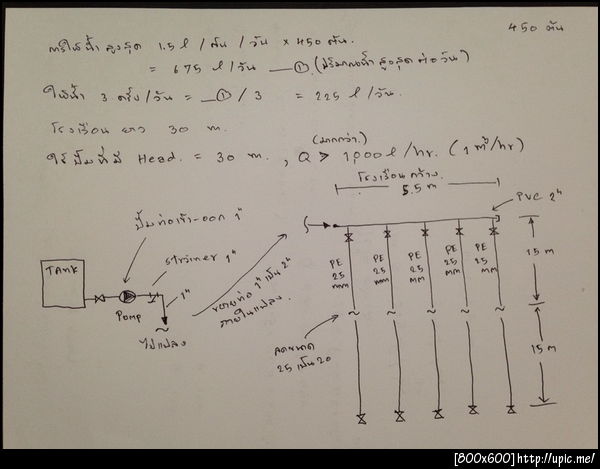 450 ต้น
การให้น้ำ สูงสุด 1.5 l / ต้น / วัน × 450 ต้น.
= 675 l / วัน —① (ปริมาณน้ำ สูงสุด ต่อวัน)
ให้น้ำ 3 ครั้ง / วัน = —① / 3 = 225 l / วัน.
โรงเรือน ยาว 30 m.
(มากกว่า.)
ใช้ปั๊มที่มี Head. = 30 m. , Q > 1,000 l / hr. (1 m³/hr)
โรงเรือนกว้าง.
5.5 m
PVC 2"
ปั๊มท่อเข้า-ออก 1"
strainer 1"
TANK
1"
Pomp
ไปแปลง
ขยายท่อ 1" เป็น 2"
ภายในแปลง.
PE 25 mm
PE 25 mm
PE 25 mm
PE 25 mm
PE 25 mm
15 m
ลดขนาด
25 เป็น 20
15 m
[800x600]http://upic.me/